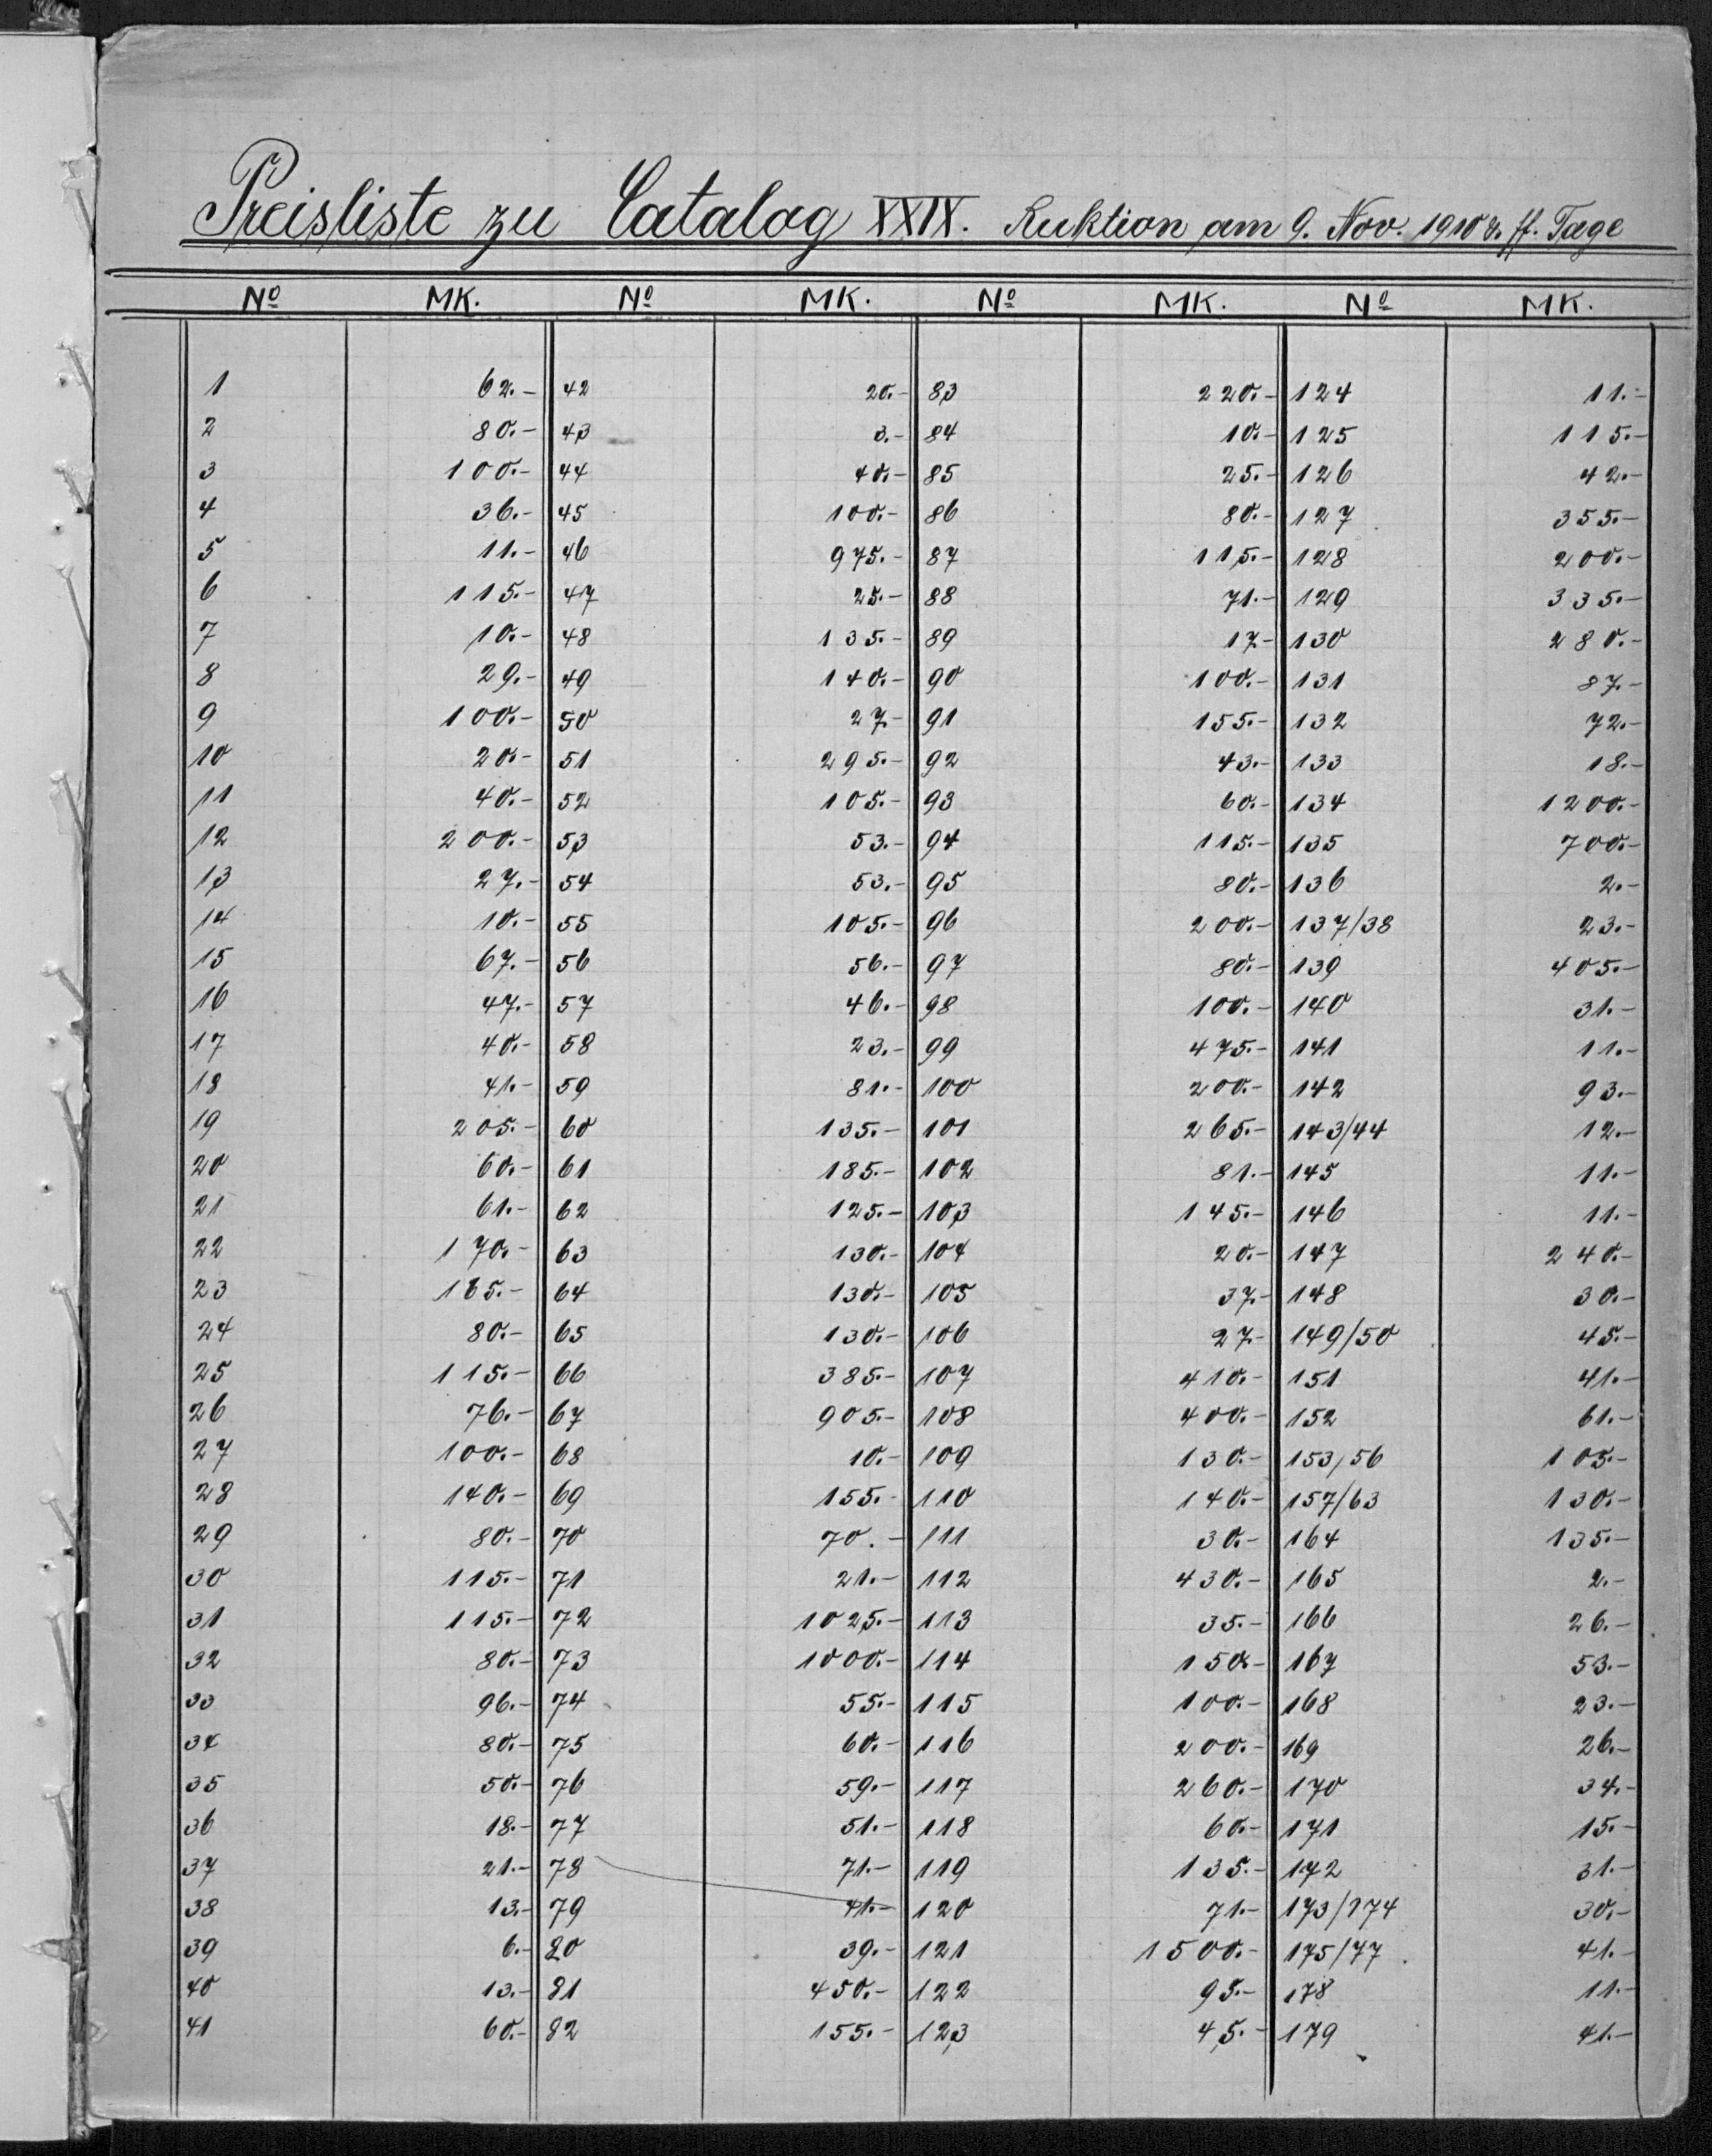 Preisliste zu Catalog XXIX. Auktion am 9. Nov. 1910 & ff. Tage
No MK. No MK. No MK. No MK.
1 62.- 42 20.- 83 220.- 124 11.-
2 80.- 43 3.- 84 10.- 125 115.-
3 100.- 44 40.- 85 25.- 126 42.-
4 36.- 45 100.- 86 80.- 127 355.-
5 11.- 46 975.- 87 115.- 128 200.-
6 115.- 47 25.- 88 71.- 129 335.-
7 10.- 48 135.- 89 17.- 130 280.-
8 29.- 49 140.- 90 100.- 131 87.-
9 100.- 50 27.- 91 155.- 132 72.-
10 20.- 51 295.- 92 43.- 133 18.-
11 40.- 52 105.- 93 60.- 134 1200.-
12 200.- 53 53.- 94 115.- 135 700.-
13 27.- 54 53.- 95 80.- 136 2.-
14 10.- 55 105.- 96 200.- 137/38 23.-
15 67.- 56 56.- 97 80.- 139 405.-
16 47.- 57 46.- 98 100.- 140 31.-
17 40.- 58 23.- 99 475.- 141 11.-
18 41.- 59 81.- 100 200.- 142 93.-
19 205.- 60 135.- 101 265.- 143/44 12.-
20 60.- 61 185.- 102 81.- 145 11.-
21 61.- 62 125.- 103 145.- 146 11.-
22 170.- 63 130.- 104 20.- 147 240.-
23 64 130.- 105 37.- 148 30.-
24 80.- 65 130.- 106 27.- 149/50 45.-
25 115.- 66 385.- 107 410.- 151 41.-
26 76.- 67 905.- 108 400.- 152 61.-
27 100.- 68 10.- 109 130.- 153/56 105.-
28 140.- 69 155.- 110 140.- 157/63 130.-
29 80.- 70 70.- 111 30.- 164 135.-
30 115.- 71 21.- 112 430.- 165 2.-
31 115.- 72 1025.- 113 35.- 166 26.-
32 80.- 73 1000.- 114 150.- 167 53.-
33 96.- 74 55.- 115 100.- 168 23.-
34 80.- 75 60.- 116 200.- 169 26.-
35 50.- 76 59.- 117 260.- 170 34.-
36 18.- 77 51.- 118 60.- 171 15.-
37 21.- 78 71.- 119 135.- 172 31.-
38 13.- 79 41.- 120 71.- 173/174 30.-
39 6.- 80 39.- 121 1500.- 175/77 41.-
40 13.- 81 450.- 122 95.- 178 11.-
41 60.- 82 155.- 123 45.- 179 41.-